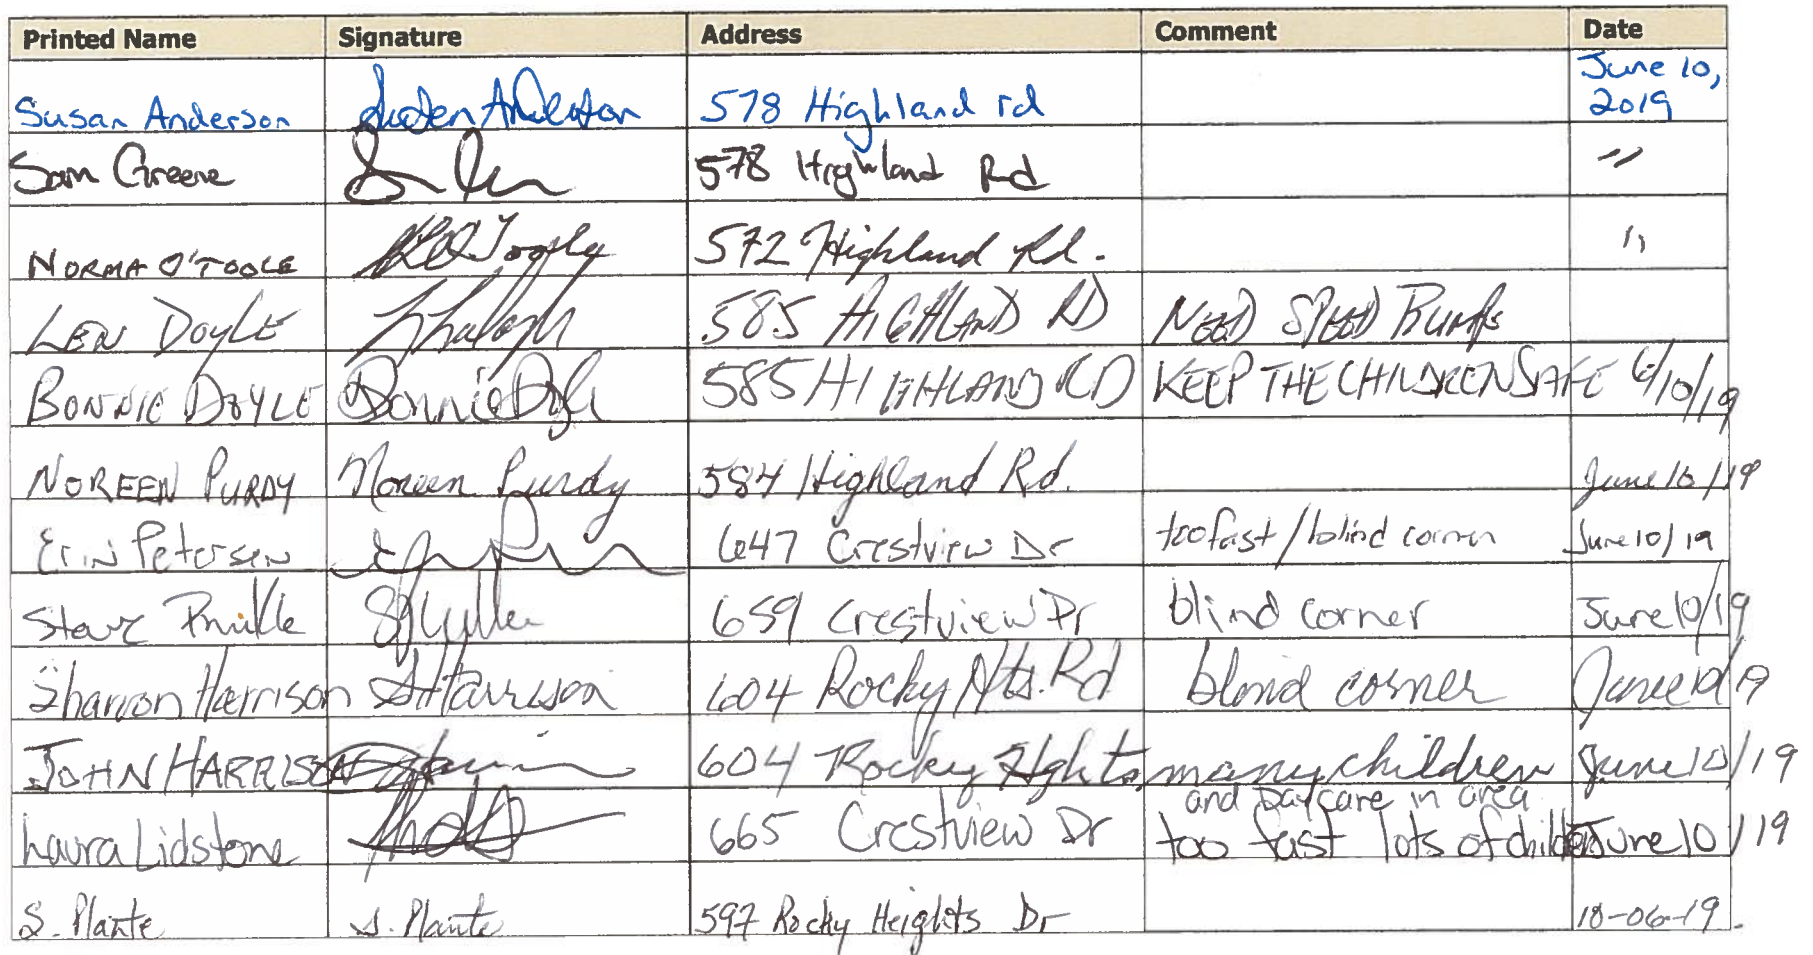 Printed Name Signature Address Comment Date
Susan Anderson 578 Highland rd June 10, 2019
Sam Greene 578 Highland Rd "
NORMA O'TOOLE 572 Highland Rd. "
LEN DOYLE 585 HIGHLAND RD NEED SPEED BUMPS
BONNIE DOYLE Bonnie Doyle 585 HIGHLAND RD KEEP THE CHILDREN SAFE 6/10/19
NOREEN PURDY Noreen Purdy 584 Highland Rd. June 10/19
Erin Petersen 647 Crestview Dr too fast/blind corner June 10/19
Steve 659 Crestview Dr blind corner June 10/19
Sharron Harrison SHarrison 604 Rocky Hts. Rd blind corner June 10/19
JOHN HARRISON 604 Rocky Hghts many children June 10/19
and Daycare in area
Laura Lidstone 665 Crestview Dr too fast lots of children June 10/19
S. Plante S. Plante 597 Rocky Heights Dr 10-06-19.